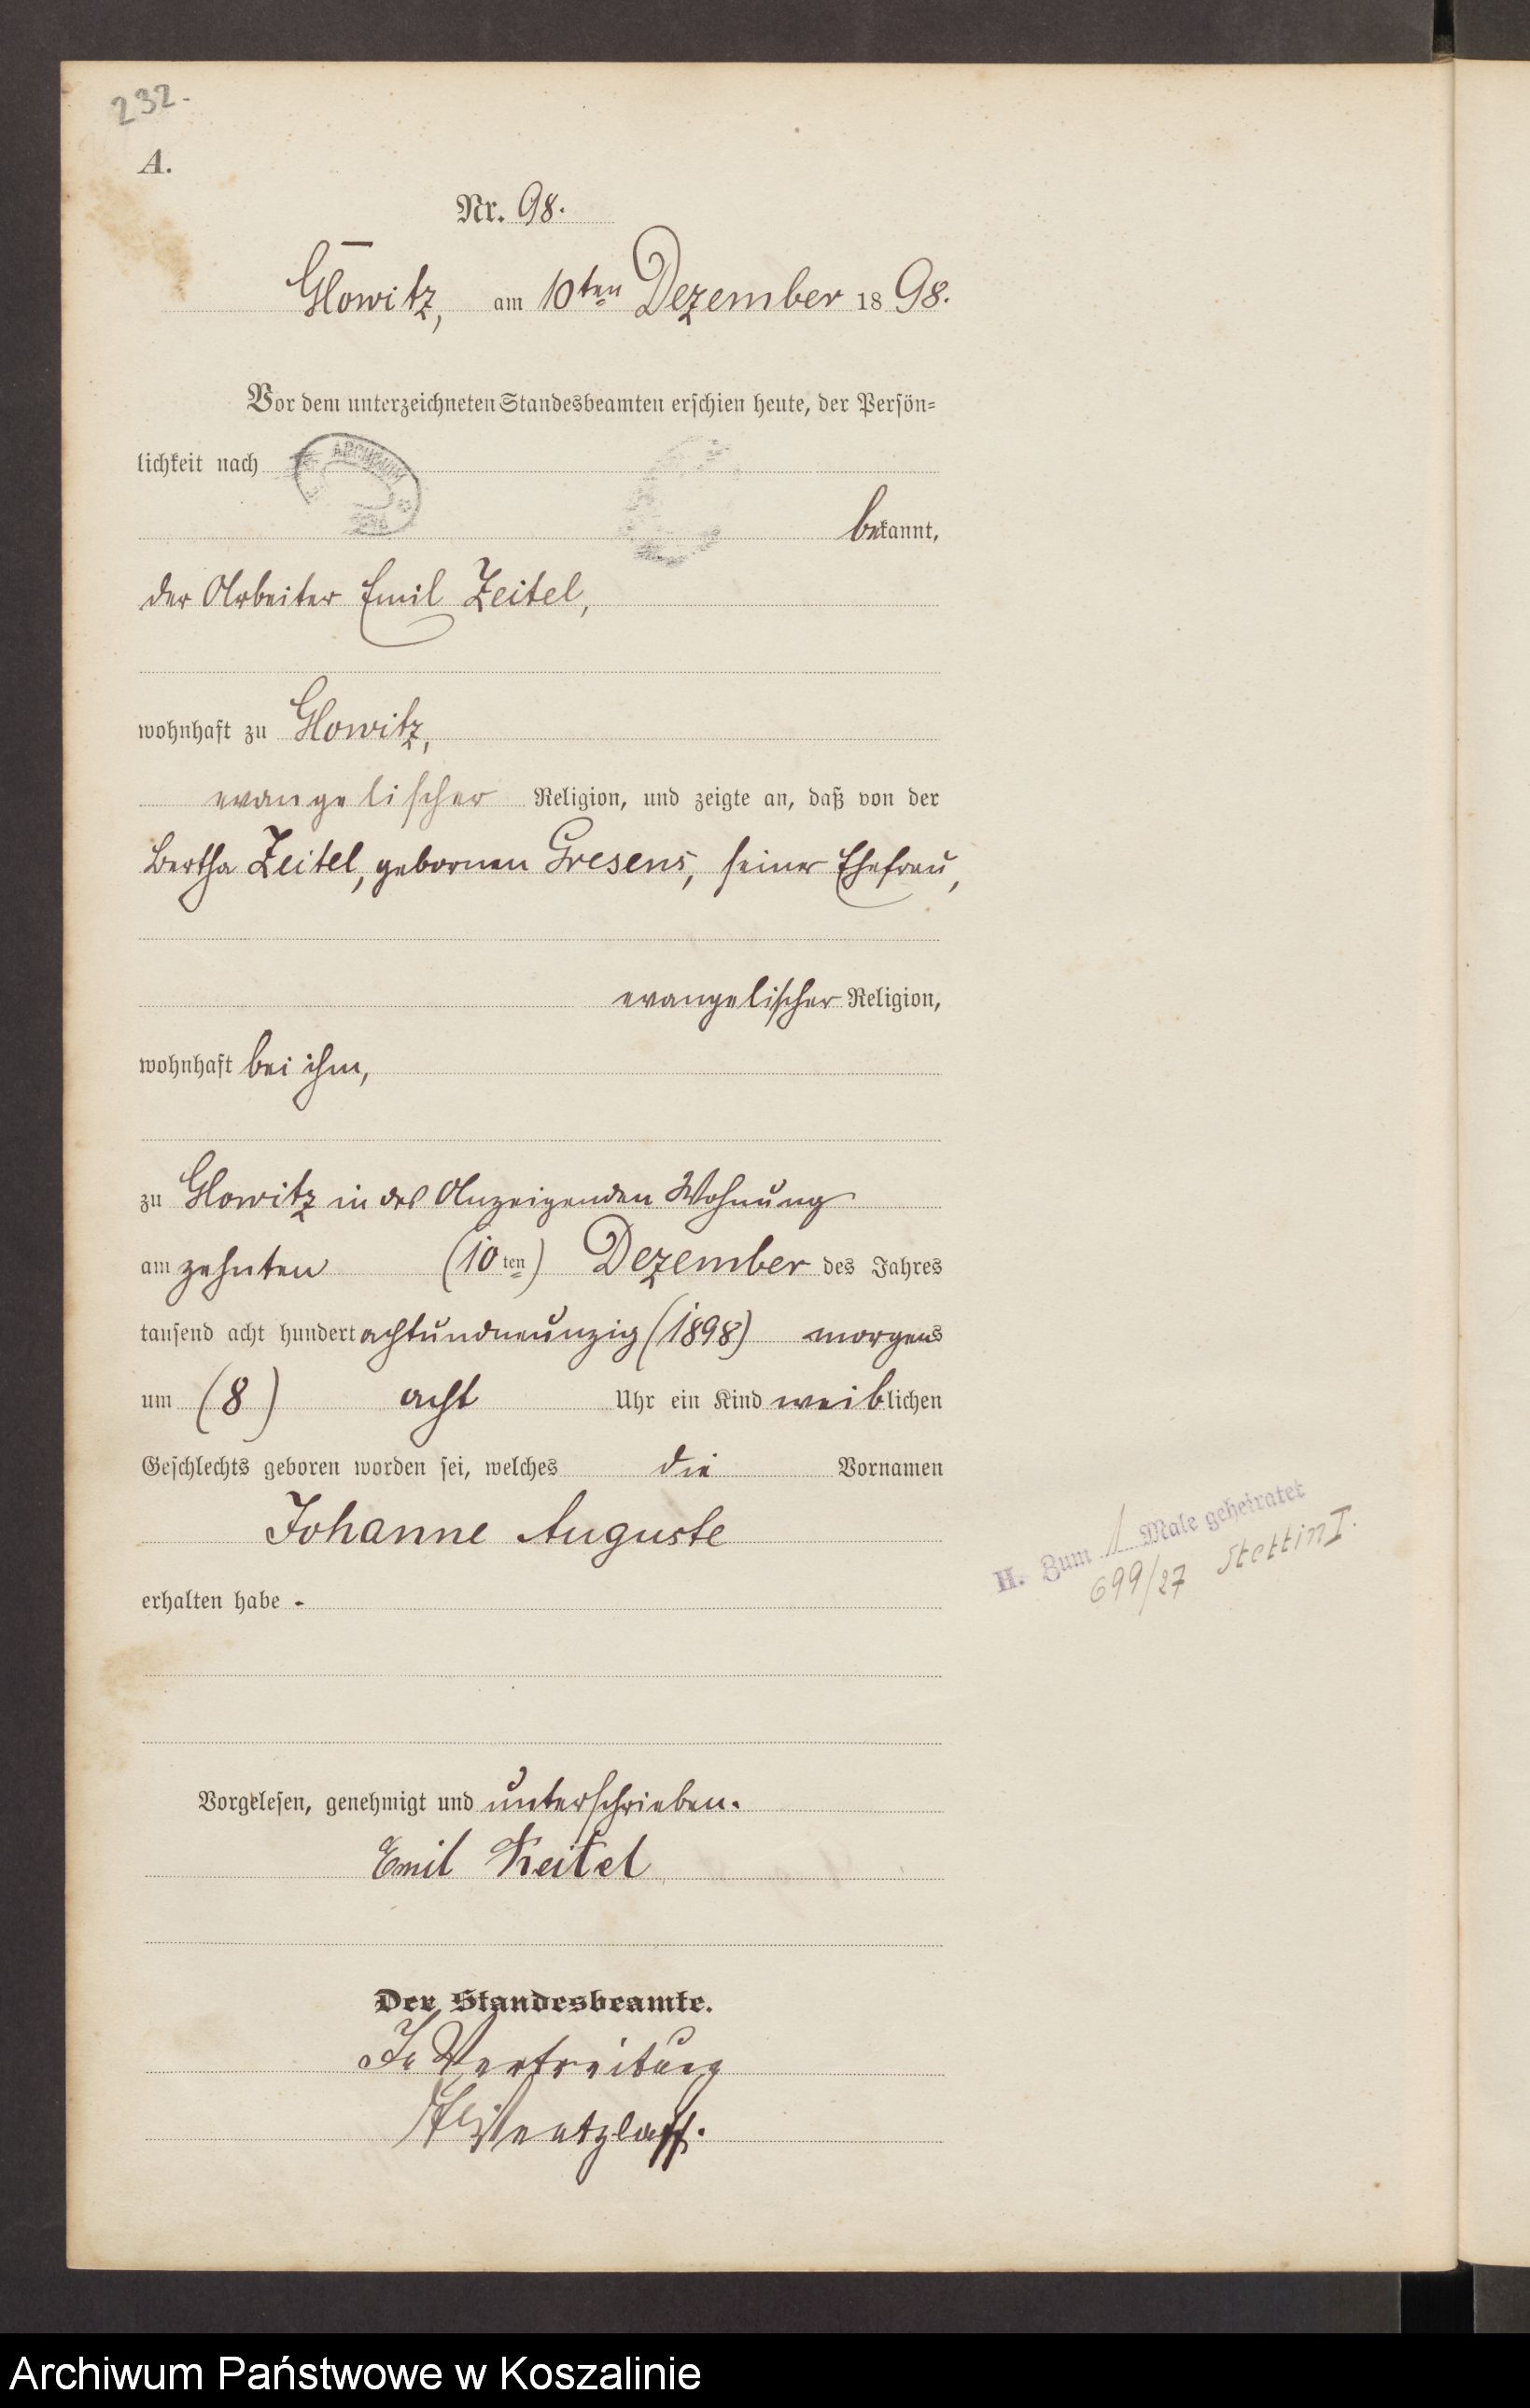 232.
A.
Nr. 98.
Glowitz, am 10ten Dezember 1898.
Vor dem unterzeichneten Standesbeamten erschien heute, der Persön=
lichkeit nach
bekannt,
der Arbeiter Emil Zeitel,
wohnhaft zu Glowitz,
evangelischer Religion, und zeigte an, daß von der
Bertha Zeitel, gebornen Gresens, seiner Ehefrau,
evangelischer Religion,
wohnhaft bei ihm,
zu Glowitz in des Anzeigenden Wohnung
am zehnten (10ten) Dezember des Jahres
tausend acht hundert achtundneunzig (1898) morgens
um (8) acht Uhr ein Kind weiblichen
Geschlechts geboren worden sei, welches die Vornamen
Johanne Auguste
erhalten habe -
H. Zum 1 Male geheiratet
699/27 Stettin I.
Vorgelesen, genehmigt und unterschrieben.
Emil Zeitel
Der Standesbeamte.
In Vertreitung
Wentzlaff.
Archiwum Państwowe w Koszalinie